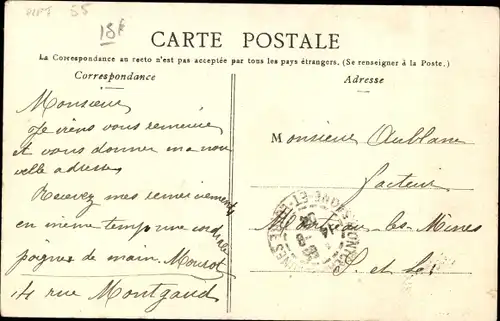 55
18F
CARTE POSTALE
La Correspondance au recto n'est pas acceptée par tous les pays étrangers. (Se renseigner à la Poste.)
Correspondance
Adresse
Monsieur
Je viens vous remercier
et vous donner ma nou
velle adresse
Recevez mes remerciements
en même temps une cord
iale
poignée de main. Mourot
14 rue Montgaud
Monsieur Aublanc
facteur
Montceau-les-Mines
S. et L.